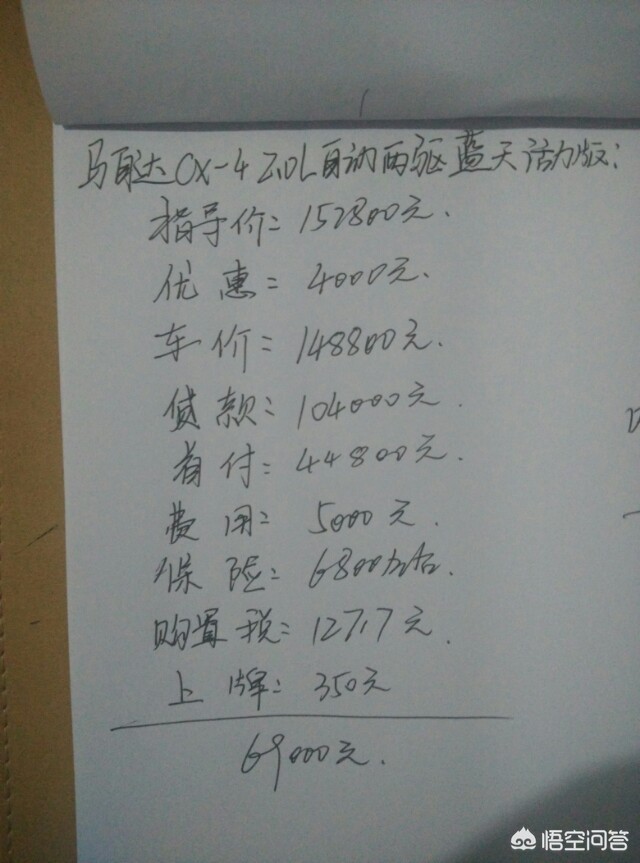 马自达CX-4 2.0L自动两驱蓝天活力版:
指导价: 152800元.
优惠: 4000元.
车价: 148800元.
贷款: 104000元.
首付: 44800元.
费用: 5000元.
保险: 6800左右.
购置税: 12717元.
上牌: 350元
69000元.
悟空问答